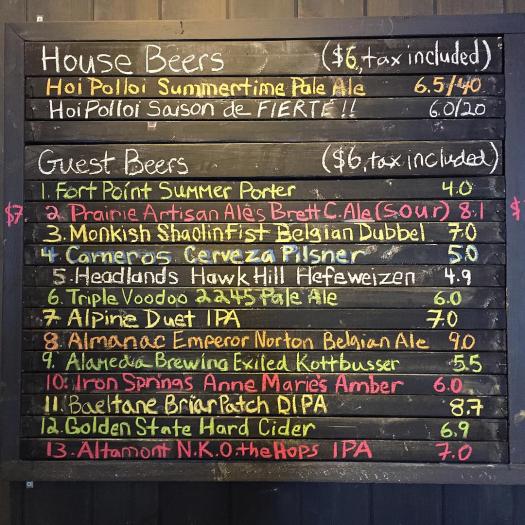 House Beers ($6, tax included)
Hoi Polloi Summertime Pale Ale 6.5/40
Hoi Polloi Saison de FIERTÉ!! 6.0/20
Guest Beers ($6, tax included)
1. Fort Point Summer Porter 4.0
$7. 2. Prairie Artisan Ales Brett C. Ale (Sour) 8.1 $
3. Monkish Shaolin Fist Belgian Dubbel 7.0
4 Carneros Cerveza Pilsner 5.0
5. Headlands Hawk Hill Hefeweizen 4.9
6. Triple Voodoo 2245 Pale Ale 6.0
7 Alpine Duet IPA 7.0
8. Almanac Emperor Norton Belgian Ale 9.0
9. Alameda Brewing Exiled Kottbusser 5.5
10. Iron Springs Anne Marie's Amber 6.0
11. Baeltane Briar Patch DIPA 8.7
12. Golden State Hard Cider 6.9
13. Altamont N.K.O the Hops IPA 7.0